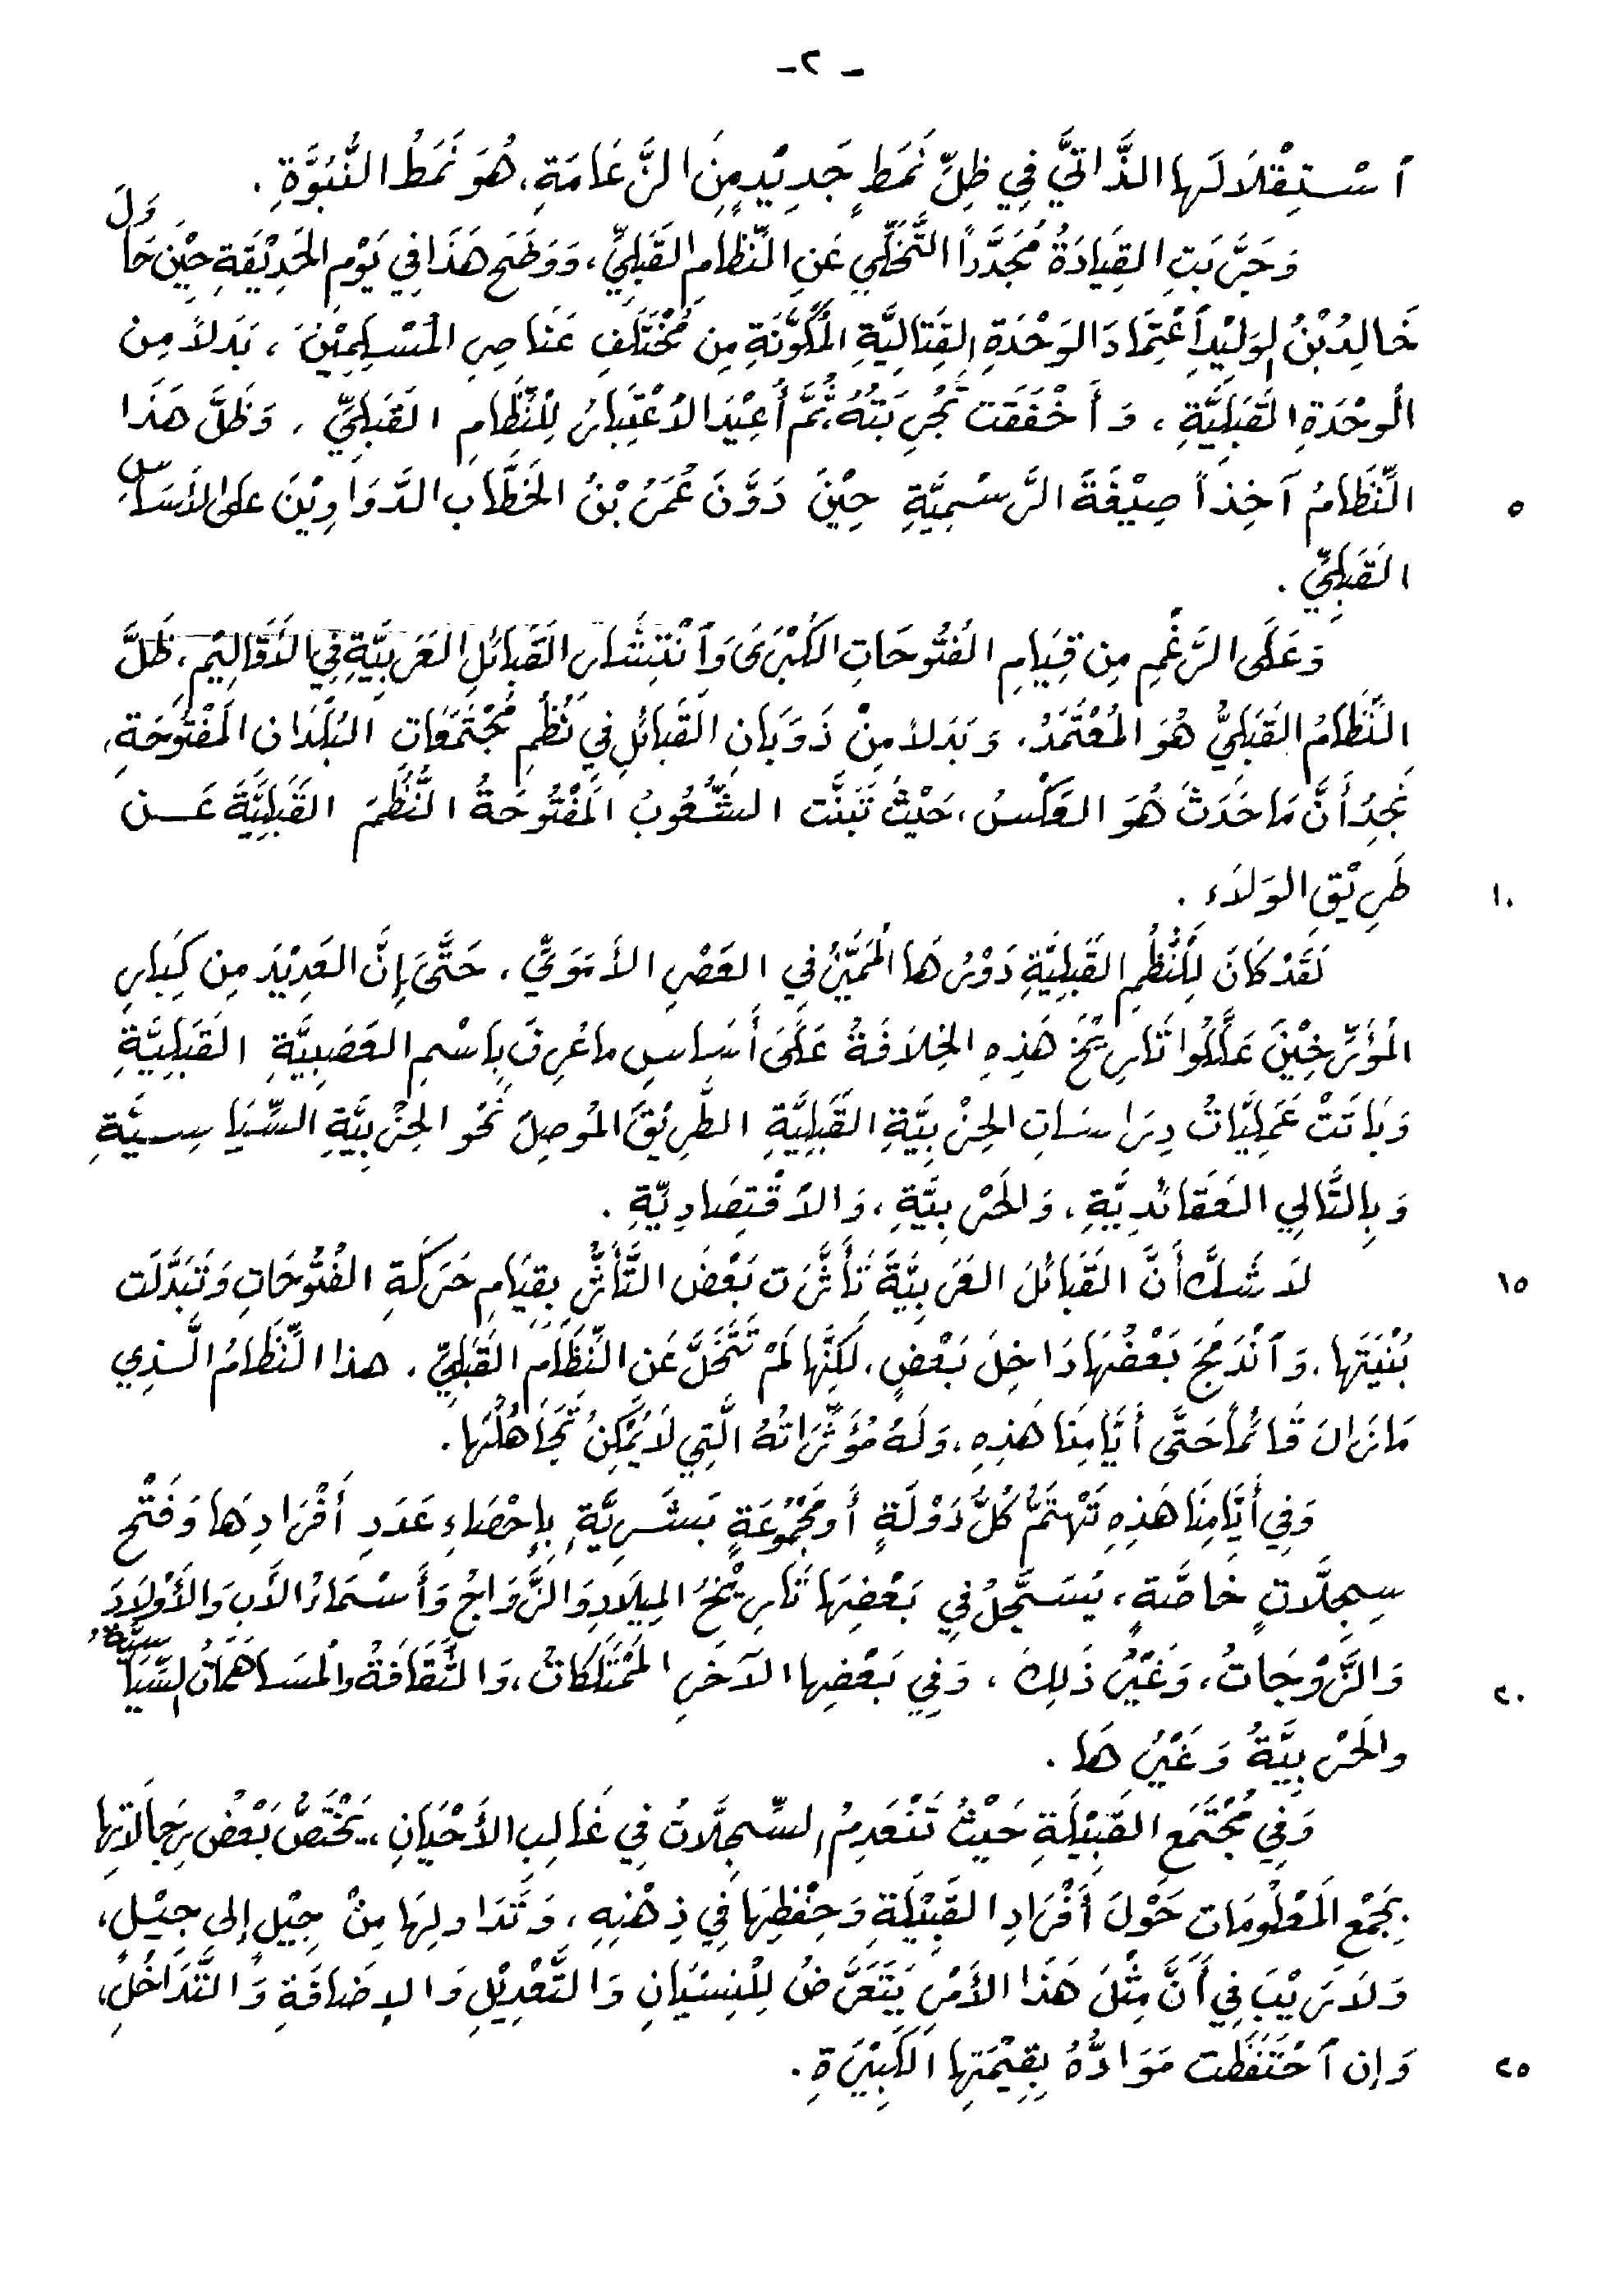 - ٢ -
ٱسْتِقْلَالَها الذَّاتيَّ فِي ظِلِّ نَمَطٍ جَدِيْدٍ مِنَ الزَّعَامَةِ، هُوَ نَمَطُ النُّبُوَّةِ .
وَجَرَّبَتِ القِيَادَةُ مُجَدَّدَاً التَّخَلِّي عَنِ النِّظامِ القَبَلِيِّ، وَوَضَحَ هَذَا فِي يَوْمِ الحَدِيْقَةِ حِيْن حَاوَلَ
خَالِدُ بْنُ الوَلِيْدِ ٱعْتِمَادَ الوَحْدَةِ القِتَالِيَّةِ المُكَوَّنَةِ مِن مُخْتَلَفِ عَنَاصِرِ المُسْلِمِيْنَ ، بَدَلاً مِن
الْوحْدَةِ القَبَلِيَّةِ ، وَأَخْفَقَت تَجْرِبَتُهُ، ثُمَّ أُعِيْدَ الاعْتِبَارُ لِلْنِّظَامِ القَبَلِيِّ . وَظَلَّ هَذَا
٥ النِّظَامُ آخِذاً صِيْغَةً الرَّسْمِيَّةِ حِيْنَ دَوَّنَ عُمَرُ بْنُ الخَطَّاب الدَّوَاوِيْنَ عَلى الأَسَاسِ
القَبَلِيِّ .
وَعَلَى الرَّغْمِ مِن قِيَامِ الفُتُوحَاتِ الكُبْرَى وَٱنْتِشَارِ القَبَائلِ العَرَبِيَّةِ فِي الأَقَالِيْمِ، ظَلَّ
النِّظَامُ القَبَلِيُّ هُوَ المُعْتَمَدُ، وَبَدَلاً مِنْ ذَوَبَانِ القَبائلِ فِي نُظُمِ مُجْتَمَعَاتِ البُلْدَانِ المَفْتُوحَةِ،
نَجِدُ أَنَّ مَا حَدَثَ هُوَ العَكْسُ، حَيْثُ تَبَنَّت الشُّعُوبُ المَفْتُوحَةُ النُّظُمَ القَبَلِيَّةَ عَـن
١٠ طَرِيْقِ الوَلَاءِ .
لَقَدْ كَانَ لِلْنُّظُمِ القَبَلِيَّةِ دَوْرُهَا المُمَيَّزُ فِي العَصْرِ الأُمَوِيِّ ، حَتَّى إِنَّ العَدِيْدَ مِن كِبَارِ
المُؤَرِّخِيْنَ عَلَّلُوا تَارِيْخَ هَذِهِ الخِلَافَةُ عَلَى أَسَاسِ مَا عُرِفَ بِاسْمِ العَصَبِيَّةِ القَبَلِيَّةِ
وَبَاتَتْ عَمَلِيَّاتُ دِرَاسَاتِ الحِزْبِيَّةِ القَبَلِيَّةِ الطَّرِيْقَ المُوصِلَ نَحْو الحِزْبِيَّةِ السِّيَاسِـيَّةِ
وَبِالتَّالِي العَقَائِدِيَّةِ ، وَالحَرْبِيَّةِ ، وَالاقْتِصَادِيَّةِ .
١٥ لَا شَكَّ أَنَّ القَبَائلَ العَرَبِيَّةَ تَأَثَّرَت بَعْضَ التَّأَثُّرِ بِقِيَامِ حَرَكَةِ الفُتُوحَاتِ وَتَبَدَّلَت
بُنْيَتَها ، وَٱنْدَمَجَ بَعْضُهَا دَاخِلَ بَعْضٍ، لَكِنَّها لَمْ تَتَخَلَّ عَن النِّظَامِ القَبَلِيِّ . هذا النِّظَامُ الَّـذِي
مَا زَالَ قَائماً حَتَّى أَيَّامِنَا هَذِهِ، وَلَهُ مُؤَثِّرَاتُهُ الَّتِي لَا يُمْكِنُ تَجَاهُلُهَا .
وَفِي أَيَّامِنَا هَذِهِ تَهْتَمُّ كُلُّ دَوْلَةٍ أَو مَجْمُوْعَةٍ بَشَـرِيَّةٍ بِإِحْصَاءِ عَدَدِ أَفْرَادِهَا وَفَتْحِ
سِجِلَّاتٍ خَاصَّةٍ ، يُسَجَّلُ فِي بَعْضِهَا تَارِيْخُ المِيلَادِ وَالزَّوَاجُ وَأَسْمَاءُ الأَبِ وَالأَوْلَادَ
٢٠ وَالزَّوْجَاتُ ، وَغَيْرُ ذَلِكَ ، وَفِي بَعْضِها الآخَرِ المُمْتَلَكَاتُ، وَالثَّقَافَةُ والمُسَاهَمَاتُ السِّيَاسِيَّةُ
والحَرْبِيَّةُ وَغَيْرُهَا .
وَفِي مُجْتَمَعِ القَبِيْلَةِ حَيْثُ تَنْعَدِمُ السِّجِلَّاتُ فِي غَالِبِ الأَحْيَانِ، يَخْتَصُّ بَعْضُ رِجَالَاتِهَا
بِجَمْعِ المَعْلُومَاتِ حَوْلَ أَفْرَادِ القَبِيْلَةِ وَحِفْظِهَا فِي ذِهْنِهِ ، وَتَدَاولِهَا مِنْ جِيْلٍ إلى جِيْـلٍ،
وَلَا رَيْبَ فِي أَنَّ مِثْلَ هَذَا الأَمْرِ يَتَعَرَّضُ لِلْنِسْيَانِ وَالتَّعْدِيْلِ وَالإِضَافَةِ وَالتَّدَاخُلِ،
٢٥ وَإن ٱحْتَفَظَت مَوَادُّهُ بِقِيْمَتِها الكَبِيْرَةِ .